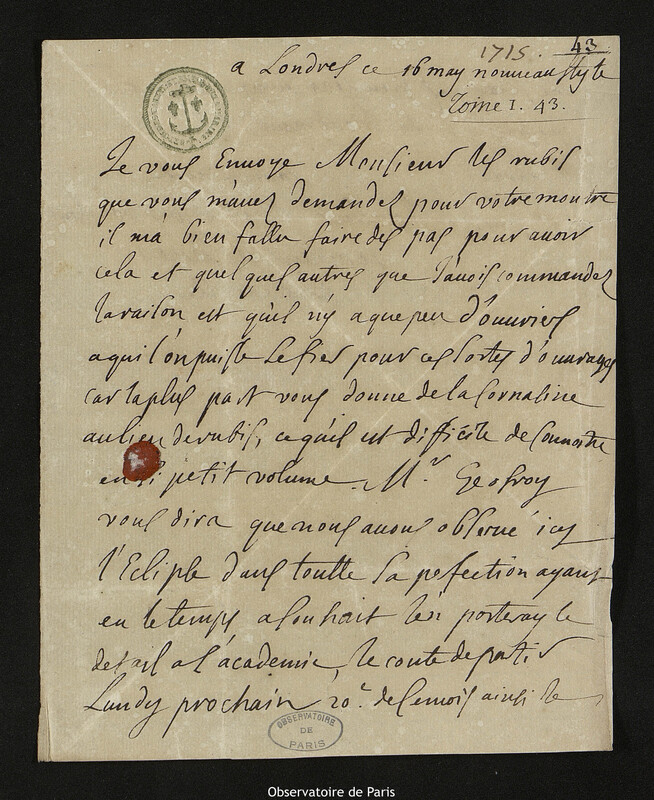 1715. 43
a Londres ce 16 may nouveau style
Tome I. 43.
Je vous Envoye Monsieur les rubis
que vous m'avez demandez pour votre montre
il m'a bien fallu faire des pas pour avoir
cela et quelques autres que J'avois commandez
la raison est qu'il n'y a que peu d'ouvriers
a qui l'on puisse se fier pour ces sortes d'ouvrages
car la plus part vous donne de la Cornaline
au lieu de rubis, ce qu'il est difficile de Connoitre
en si petit volume. Mr Geofroy
vous dira que nous avons observé icy
l'Eclipse dans toutte sa perfection ayant
eu le temps a souhait Je en porteray le
detail a l'academie, Je conte de partir
Lundy prochain 20e. de ce mois ainsi Je
OBSERVATOIRE
DE
PARIS
Observatoire de Paris